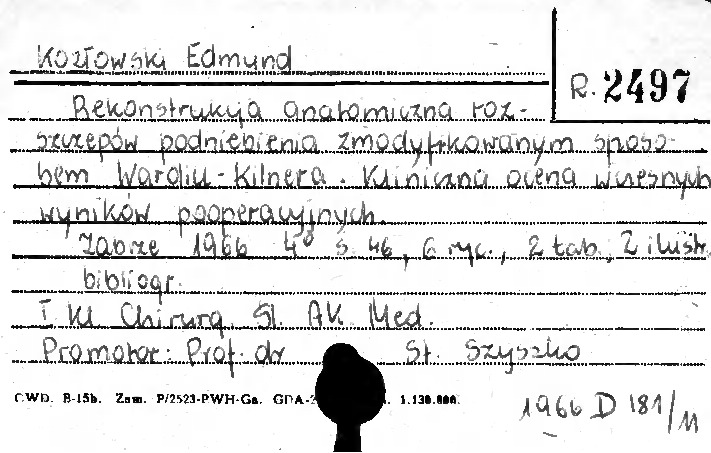 Kozłowski Edmund
R. 2497
Rekonstrukcja anatomiczna roz-
szczepów podniebienia zmodyfikowanym sposo-
bem Wardill-Kilnera. Kliniczna ocena wczesnych
wyników pooperacyjnych.
Zabrze 1966 4° s. 46, 6 ryc., 2 tab., 2 ilustr.
bibliogr.
I Kl Chirurg. Śl. AK. Med.
Promotor: Prof. dr St. Szyszko
CWD. B-15b. Zam. P/2523-PWH-Ga. GDA- 1.130.000.
1966 D 181/11